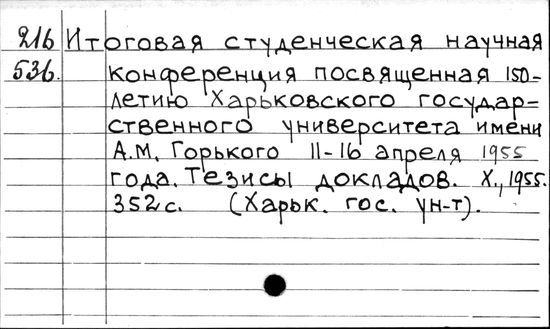 216 Итоговая студенческая научная
536. конференция посвященная 150-
летию Харьковского государ-
ственного университета имени
А.М. Горького 11-16 апреля 1955
года. Тезисы докладов. Х., 1955.
352 с. (Харьк. гос. ун-т).